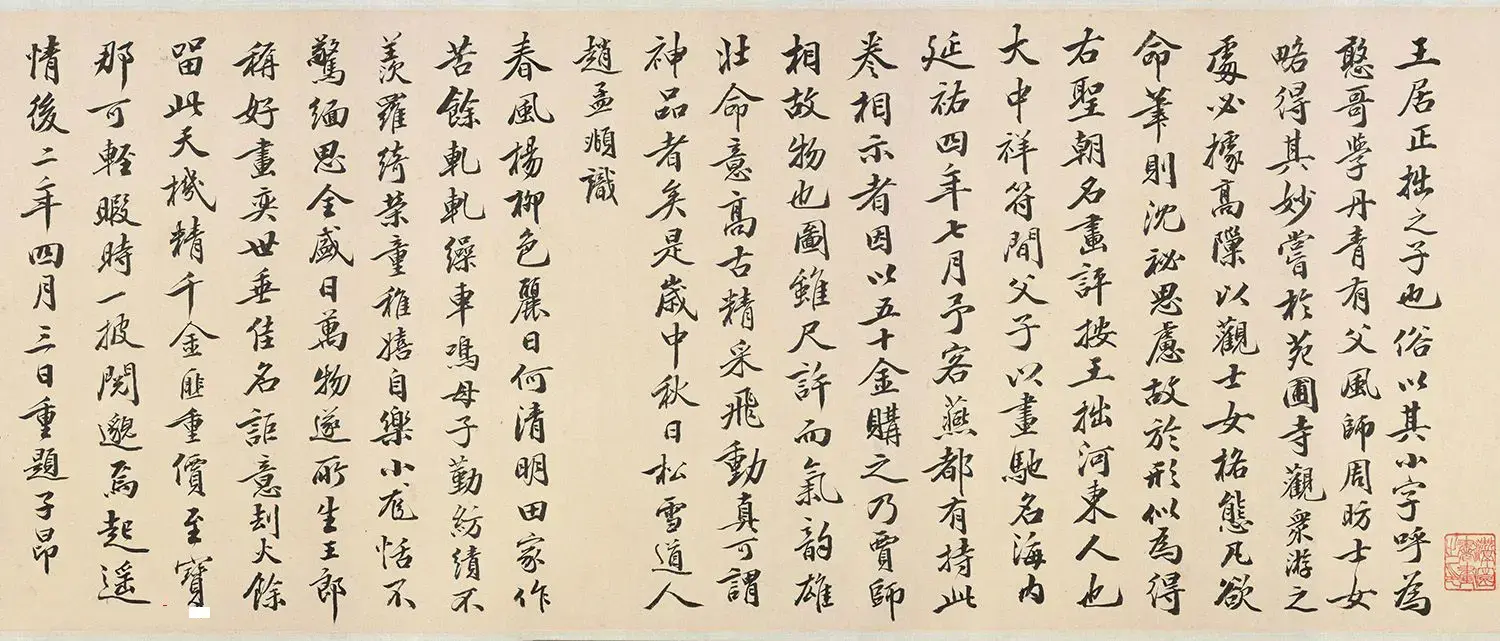 王居正拙之子也俗以其小字呼為
憨哥學丹青有父風師周昉士女
略得其妙嘗於苑圃寺觀衆游之
處必據高隙以觀士女格態凡欲
命筆則沈祕思慮故於形似為得
右聖朝名畫評按王拙河東人也
大中祥符間父子以畫馳名海内
延祐四年七月予客燕都有持此
卷相示者因以五十金購之乃賈師
相故物也圖雖尺許而氣韵雄
壯命意高古精采飛動真可謂
神品者矣是歲中秋日松雪道人
趙孟頫識
春風楊柳色麗日何清明田家作
苦餘軋軋繰車鳴母子勤紡績不
羡羅綺榮童稚嬉自樂小尨恬不
驚緬思全盛日萬物遂所生王郎
稱好畫奕世垂佳名詎意刦火餘
留此天機精千金匪重價至寶
那可輕暇時一披閲邈焉起遥
情後二年四月三日重題子昂